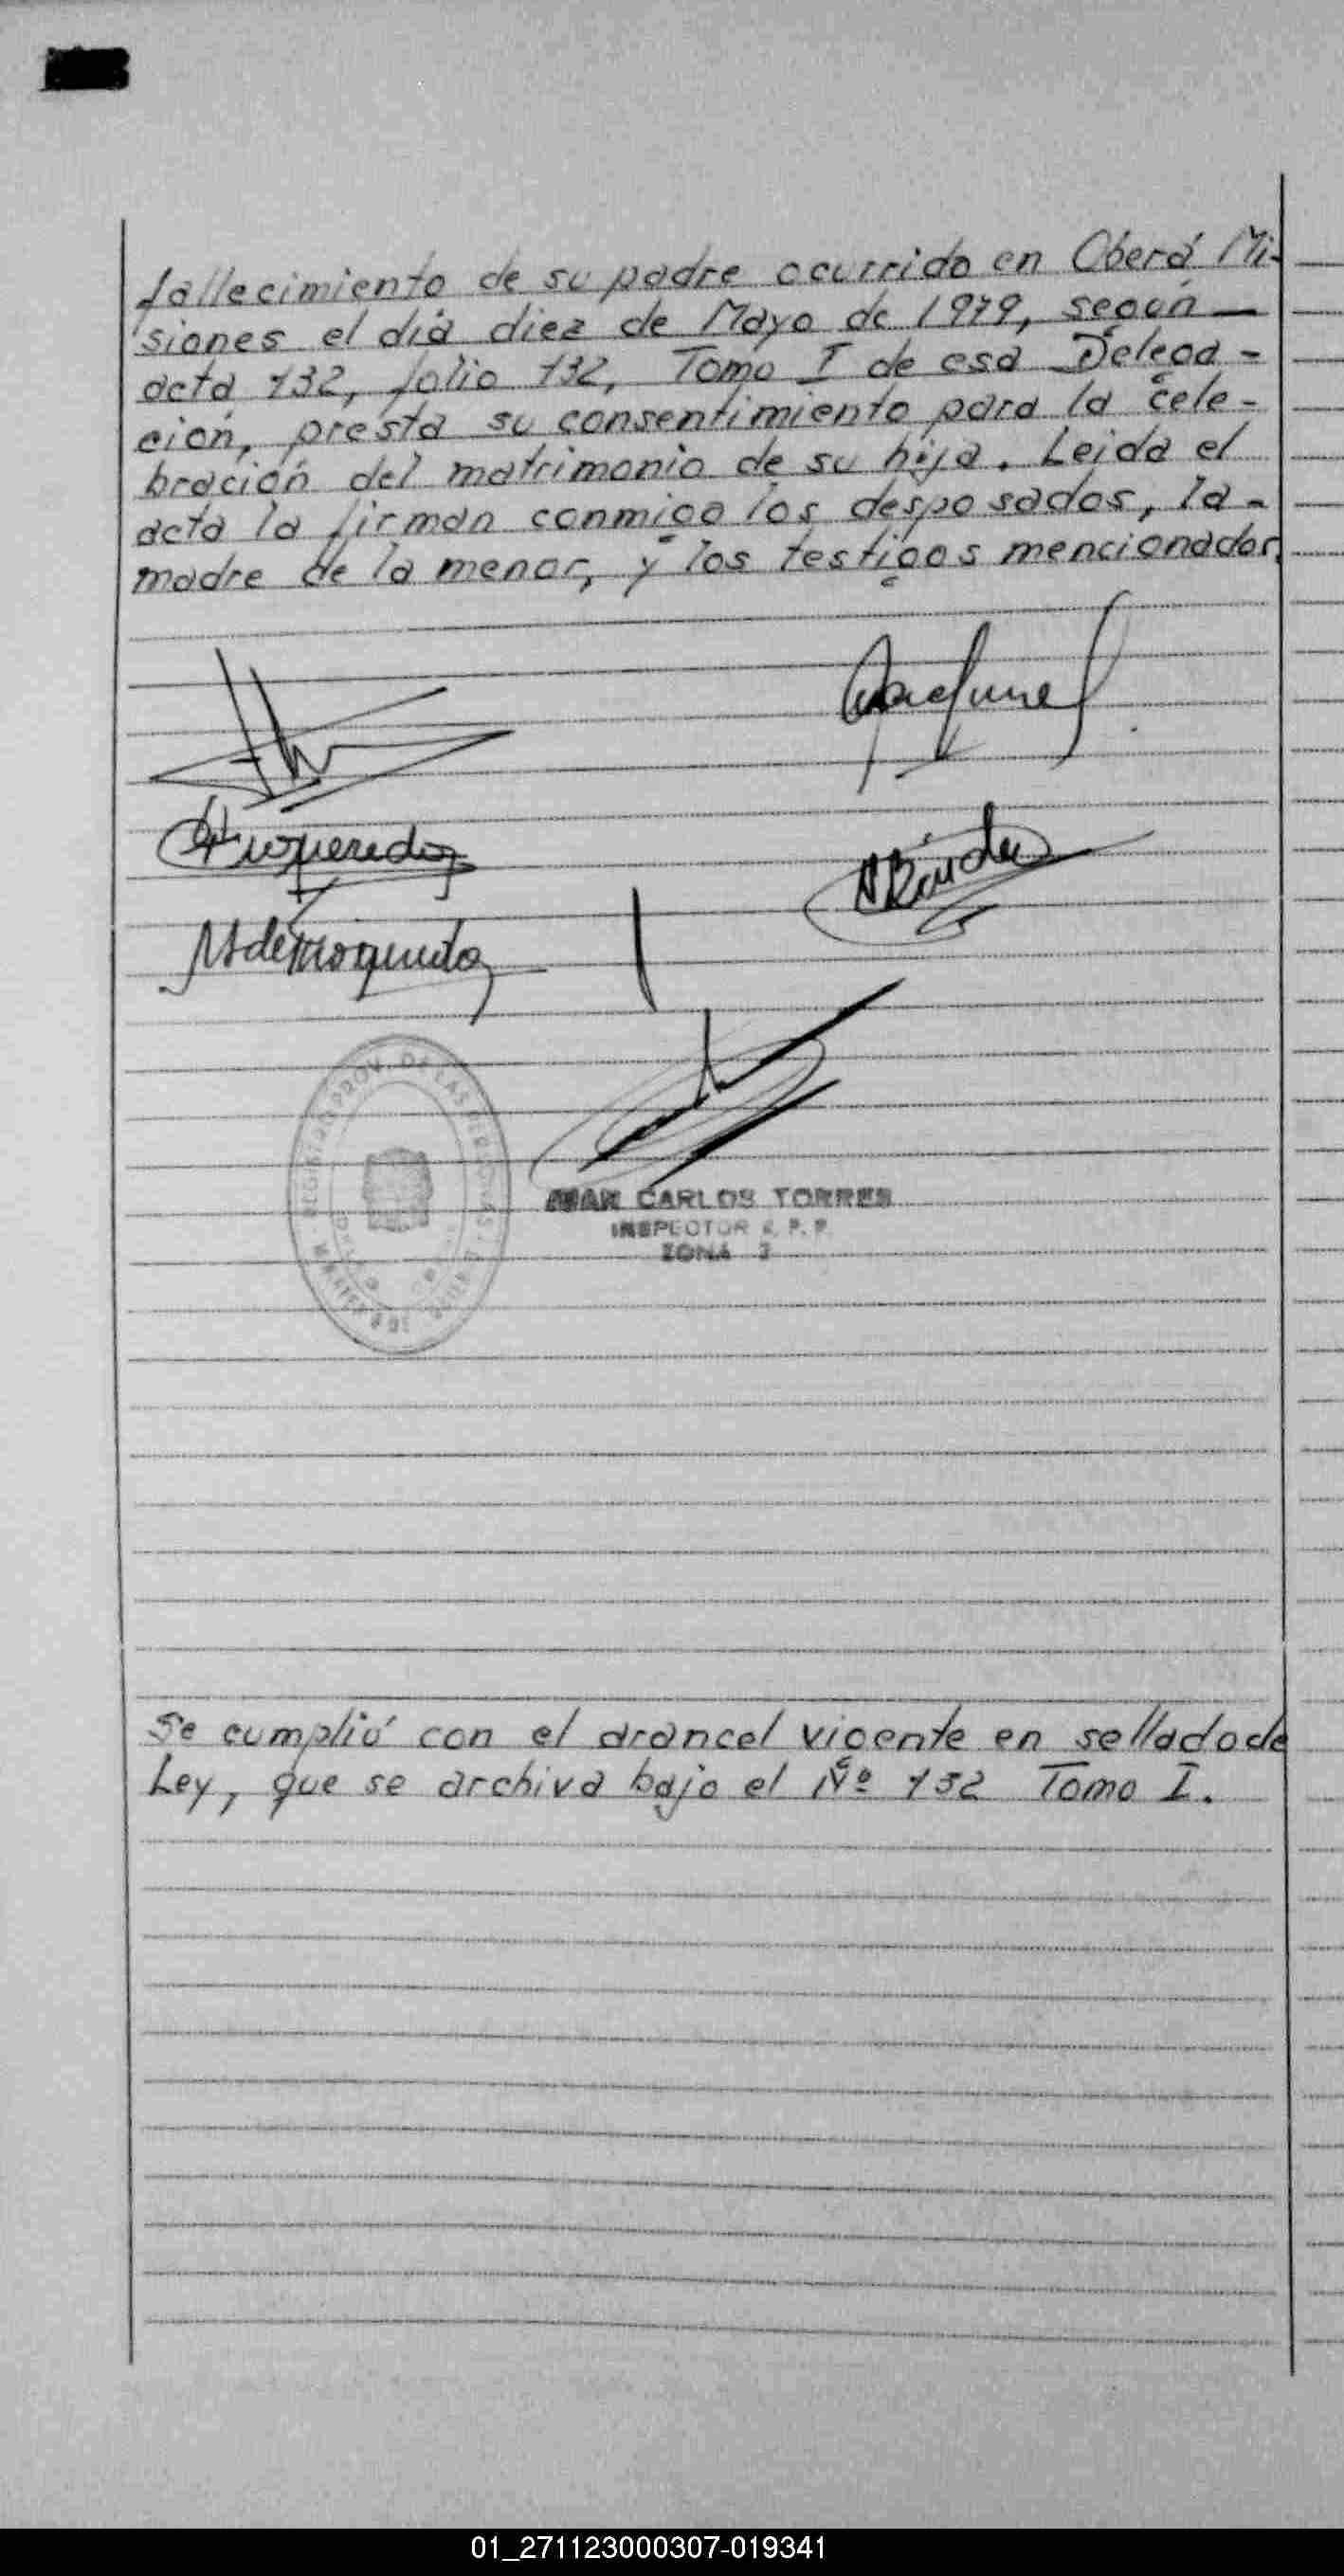 fallecimiento de su padre ocurrido en Oberá Mi-
siones el día diez de Mayo de 1979, según —
acta 132, folio 132, Tomo I de esa Delega-
ción, presta su consentimiento para la cele-
bración del matrimonio de su hija. Leida el
acta la firman conmigo los desposados, la-
madre de la menor, y los testigos mencionados.
JUAN CARLOS TORRES
INSPECTOR R. P. P.
ZONA
Se cumplió con el arancel vigente en sellado de
Ley, que se archiva bajo el Nº 132 Tomo I.
01_271123000307-019341